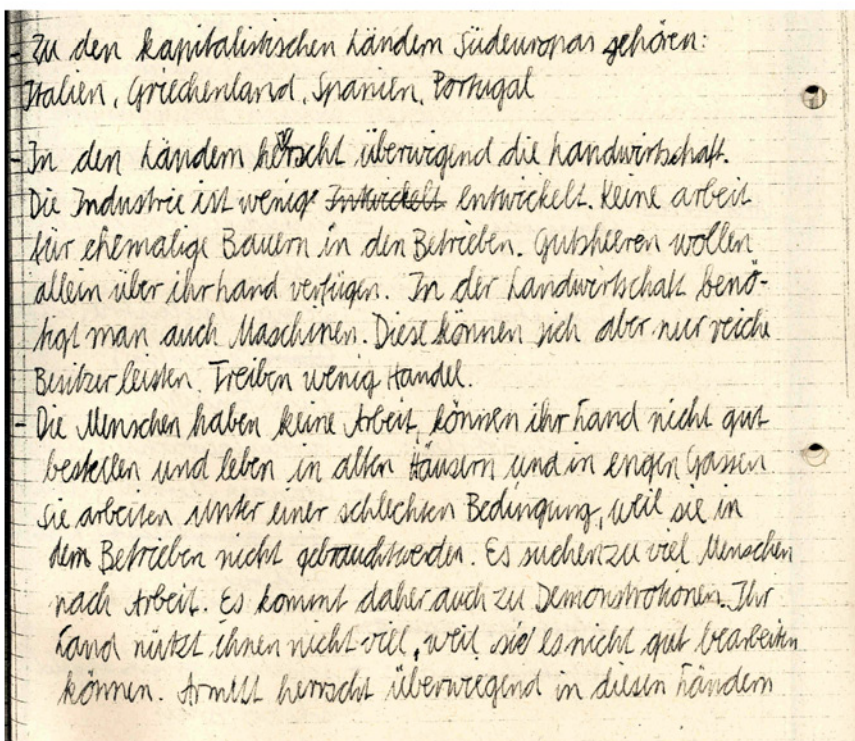 - Zu den kapitalistischen Ländern Südeuropas gehören:
Italien, Griechenland, Spanien, Portugal
- In den Ländern herrscht überwigend die Landwirtschaft.
Die Industrie ist wenig entwickelt. Keine arbeit
für ehemalige Bauern in den Betrieben. Gutsheeren wollen
allein über ihr Land verfügen. In der Landwirtschaft benö-
tigt man auch Maschinen. Diese können sich aber nur reiche
Besitzer leisten. Treiben wenig Handel.
- Die Menschen haben keine Arbeit, können ihr Land nicht gut
bestellen und leben in alten Häusern und in engen Gassen
Sie arbeiten unter einer schlechten Bedingung, weil sie in
dem Betrieben nicht gebraucht werden. Es suchen zu viel Menschen
nach Arbeit. Es kommt daher auch zu Demonstrationen. Ihr
Land nützt ihnen nicht viel, weil sie es nicht gut bearbeiten
können. Armut herrscht überwiegend in diesen Ländern